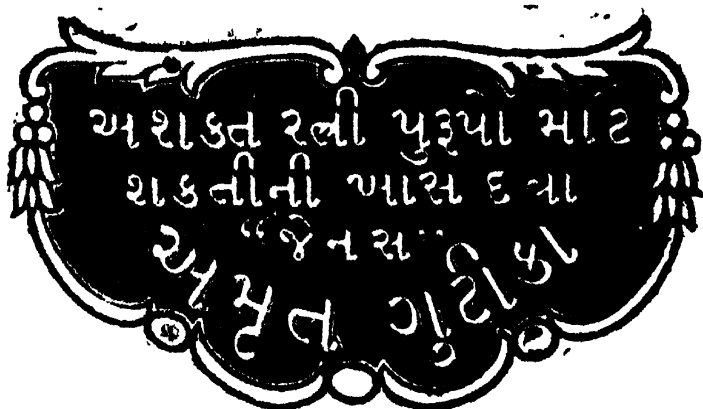 અશક્ત સ્ત્રી પુરૂષો માટે
શક્તીની ખાસ દવા
“જેનસ”
અમૃત ગુટીકા